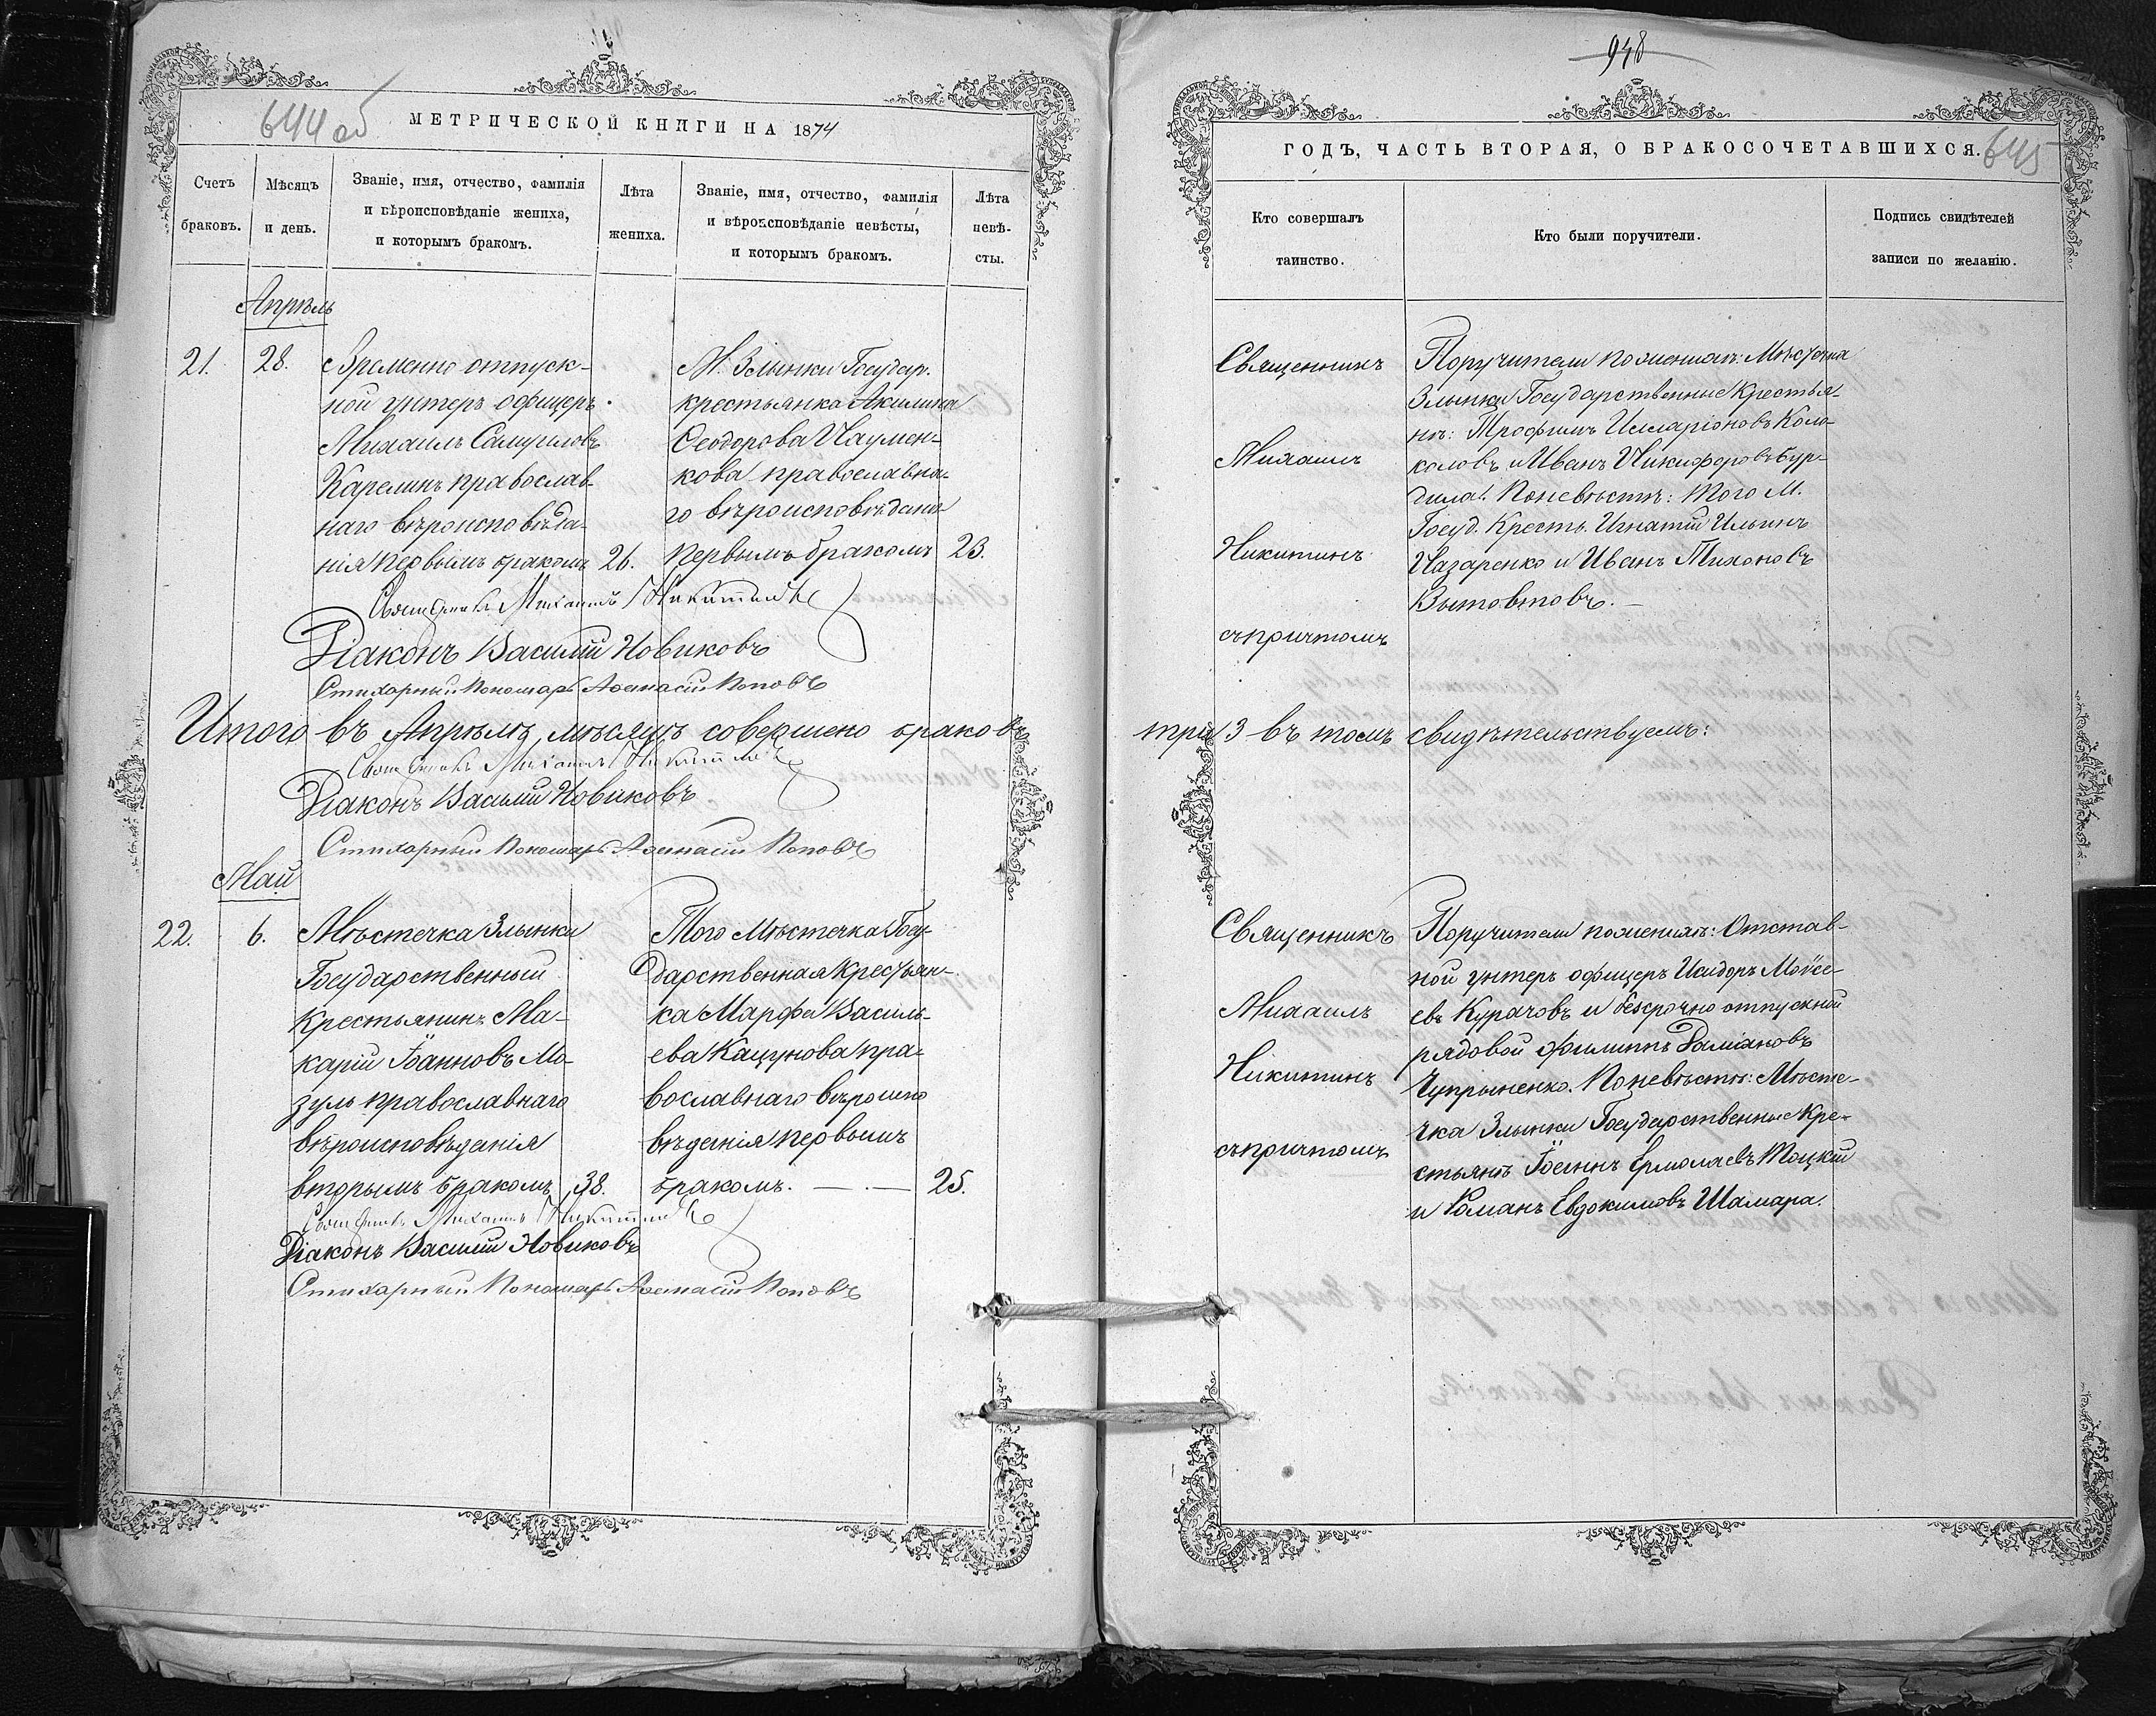 644 об
МЕТРИЧЕСКОЙ КНИГИ НА 1874
Счетъ
браковъ.
Мѣсяцъ
и день.
Званіе, имя, отчество, фамилія
и вѣроисповѣданіе жениха,
и которымъ бракомъ.
Лѣта
жениха.
Званіе, имя, отчество, фамилія
и вѣроисповѣданіе невѣсты,
и которымъ бракомъ.
Лѣта
невѣ-
сты.
Апрѣль
21.
28.
Временно отпуск-
ной унтеръ офицеръ
Михаилъ Самуиловъ
Карелинъ православ-
наго вѣроисповѣда-
нія первымъ бракомъ
26.
М. Злынки Государ.
крестьянка Акилина
Ѳеодорова Наумен-
кова православна-
го вѣроисповѣданія
первымъ бракомъ
23.
Священникъ Михаилъ Никитинъ
Діаконъ Василій Новиковъ
Стихарный Пономарь Аѳанасій Поповъ
Итого въ Апрѣлѣ мѣсяцѣ совершено браковъ
Священникъ Михаилъ Никитинъ
Діаконъ Василій Новиковъ
Стихарный Пономарь Аѳанасій Поповъ
Май
22.
6.
Мѣстечка Злынки
Государственный
Крестьянинъ Ма-
карій Іоанновъ Ма-
зуль православнаго
вѣроисповѣданія
вторымъ бракомъ
38.
Того Мѣстечка Госу-
дарственная крестьян-
ка Марфа Василь-
ева Кацунова пра-
вославнаго вѣроиспо
вѣданія первымъ
бракомъ. — . —
25.
Священникъ Михаилъ Никитинъ
Діаконъ Василій Новиковъ
Стихарный Пономарь Аѳанасій Поповъ
948
ГОДЪ, ЧАСТЬ ВТОРАЯ, О БРАКОСОЧЕТАВШИХСЯ.
645
Кто совершалъ
таинство.
Кто были поручители.
Подпись свидѣтелей
записи по желанію.
Священникъ
Михаилъ
Никитинъ
съ причтомъ
Поручители по женихѣ: Мѣстечка
Злынки Государственные Крестья-
не: Трофимъ Илларіоновъ Коло-
коловъ и Иванъ Никифоровъ Бур-
дила. По невѣстѣ: того М.
Госуд. Кресть. Игнатій Ильинъ
Назаренко и Иванъ Тихоновъ
Вытовтовъ. —
три 3 въ томъ свидѣтельствуемъ:
Священникъ
Михаилъ
Никитинъ
съ причтомъ
Поручители по женихѣ: Отстав-
ной унтеръ офицеръ Исидоръ Моѵсе-
евъ Курачовъ и безсрочно отпускной
рядовой Филиппъ Даміановъ
Чупрыненко. По невѣстѣ: Мѣсте-
чка Злынки Государственные Кре-
стьяне Іоаннъ Ермолаевъ Тоцкій
и Романъ Евдокимовъ Шамара.